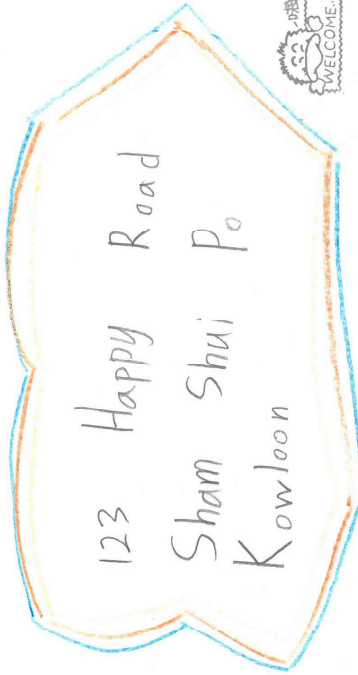 123 Happy Road
Sham Shui Po
Kowloon
WELCOME..